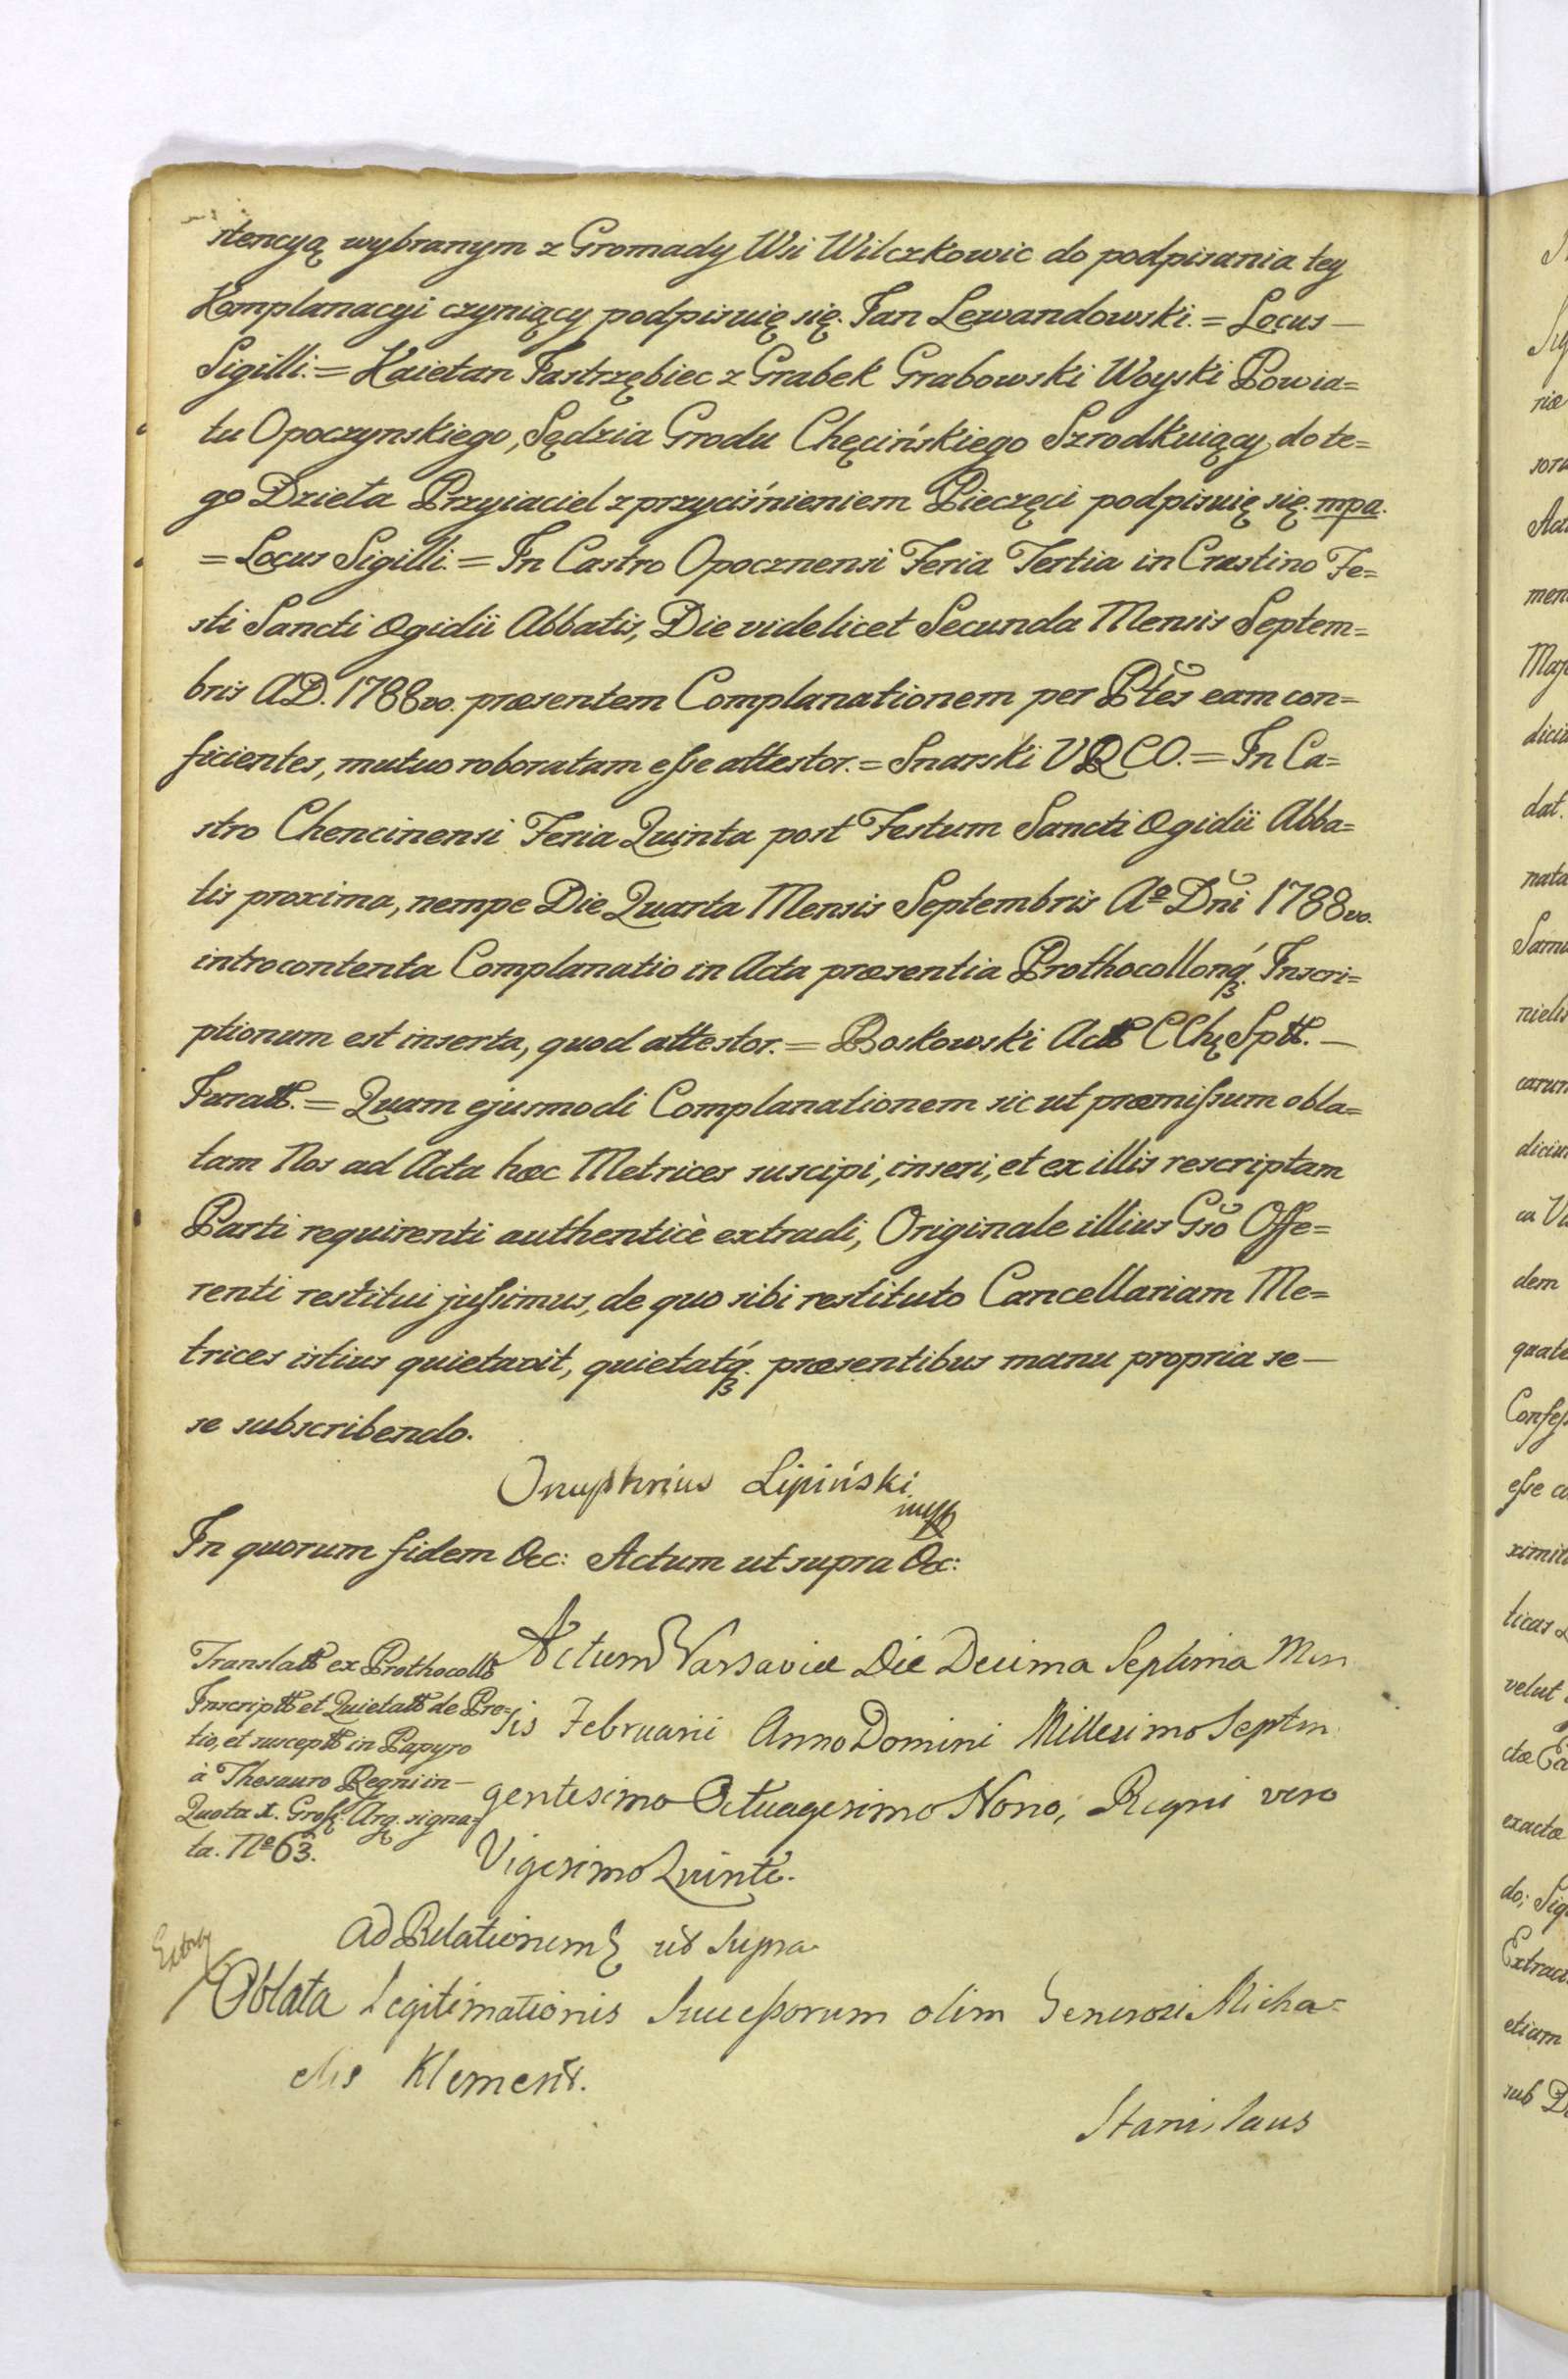 stencyą wybranym z Gromady Wsi Wilczkowic do podpisania tey
Komplanacyi czyniący podpisuię się. Jan Lewandowski. = Locus —
Sigilli. = Kaietan Jastrzębiec z Grabek Grabowski Woyski Powia=
tu Opoczynskiego, Sędzia Grodu Chęcińskiego Szrodkuiący do te=
go Dzieła Przyiaciel z przyciśnieniem Pieczęci podpisuię się. mpa.
= Locus Sigilli. = In Castro Opocznensi Feria Tertia in Crastino Fe=
sti Sancti Ægidii Abbatis, Die videlicet Secunda Mensis Septem=
bris A.D. 1788vo. præsentem Complanationem per Ptes eam con=
ficientes, mutuo roboratam eſse attestor. = Snarski V R C O. = In Ca=
stro Chencinensi Feria Quinta post Festum Sancti Ægidii Abba=
tis proxima, nempe Die Quarta Mensis Septembris Aº Dni 1788vo.
introcontenta Complanatio in Acta præsentia Prothocollonq́ꝫ. Inscri=
ptionum est inserta, quod attestor. = Boskowski Actt CChę Sptt. —
Juratt. = Quam ejusmodi Complanationem sic ut præmiſsum obla=
tam Nos ad Acta hæc Metrices suscipi, inseri, et ex illis rescriptam
Parti requirenti authenticè extradi, Originale illius Gso Offe=
renti restitui juſsimus, de quo sibi restituto Cancellariam Me=
trices istius quietavit, quietatq́ꝫ. præsentibus manu propria se —
se subscribendo.
Onuphrius Lipiński
mpp
In quorum fidem &c: Actum ut supra &c:
Actum Varsaviæ Die Decima Septima Men
sis Februarii Anno Domini Millesimo Septin
gentesimo Octuagesimo Nono, Regni vero
Vigesimo Quinto.
Translatt ex Prothocollo
Inscriptt et Quietatt de Pre=
tio, et susceptt in Papyro
à Thesauro Regni in —
Quota x. Groſs. Arg. signa=
ta. Nº 63.
Ad Relationem ut supra
Oblata Legitimationis Succeſsorum olim Generosi Micha=
elis Klement.
Stanislaus